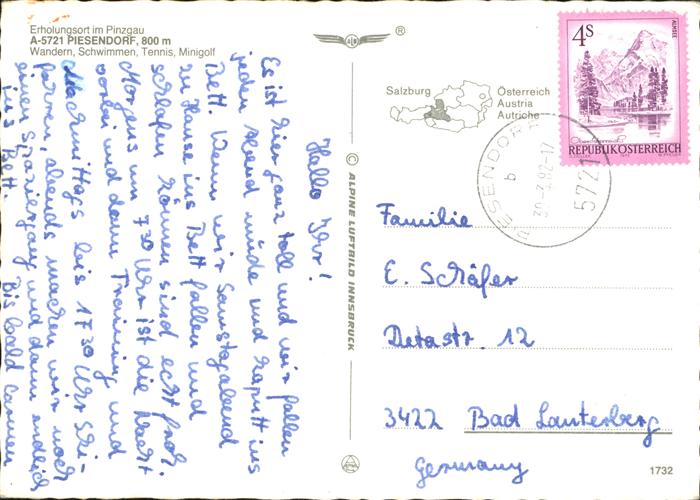 Erholungsort im Pinzgau
A-5721 PIESENDORF, 800 m
Wandern, Schwimmen, Tennis, Minigolf
Hallo Ihr!
Es ist hier ganz toll und wir fallen
jeden Abend müde und kaputt ins
Bett. Wenn wir Samstagabend
zu Hause ins Bett fallen und
schlafen können sind echt froh.
Morgens um 7 30 Uhr ist die Nacht
vorbei und dann Training und
Nachmittags bis 17 30 Uhr Ski-
fahren, abends machen wir noch
einen Spaziergang und dann endlich
ins Bett. Bis bald
®
Salzburg
Österreich
Austria
Autriche
© ALPINE LUFTBILD INNSBRUCK
4S
ALMSEE
REPUBLIK ÖSTERREICH
PIESENDORF
b
82-17
5721
Familie
E. Schäfer
Detastr. 12
3422 Bad Lauterberg
Germany
1732